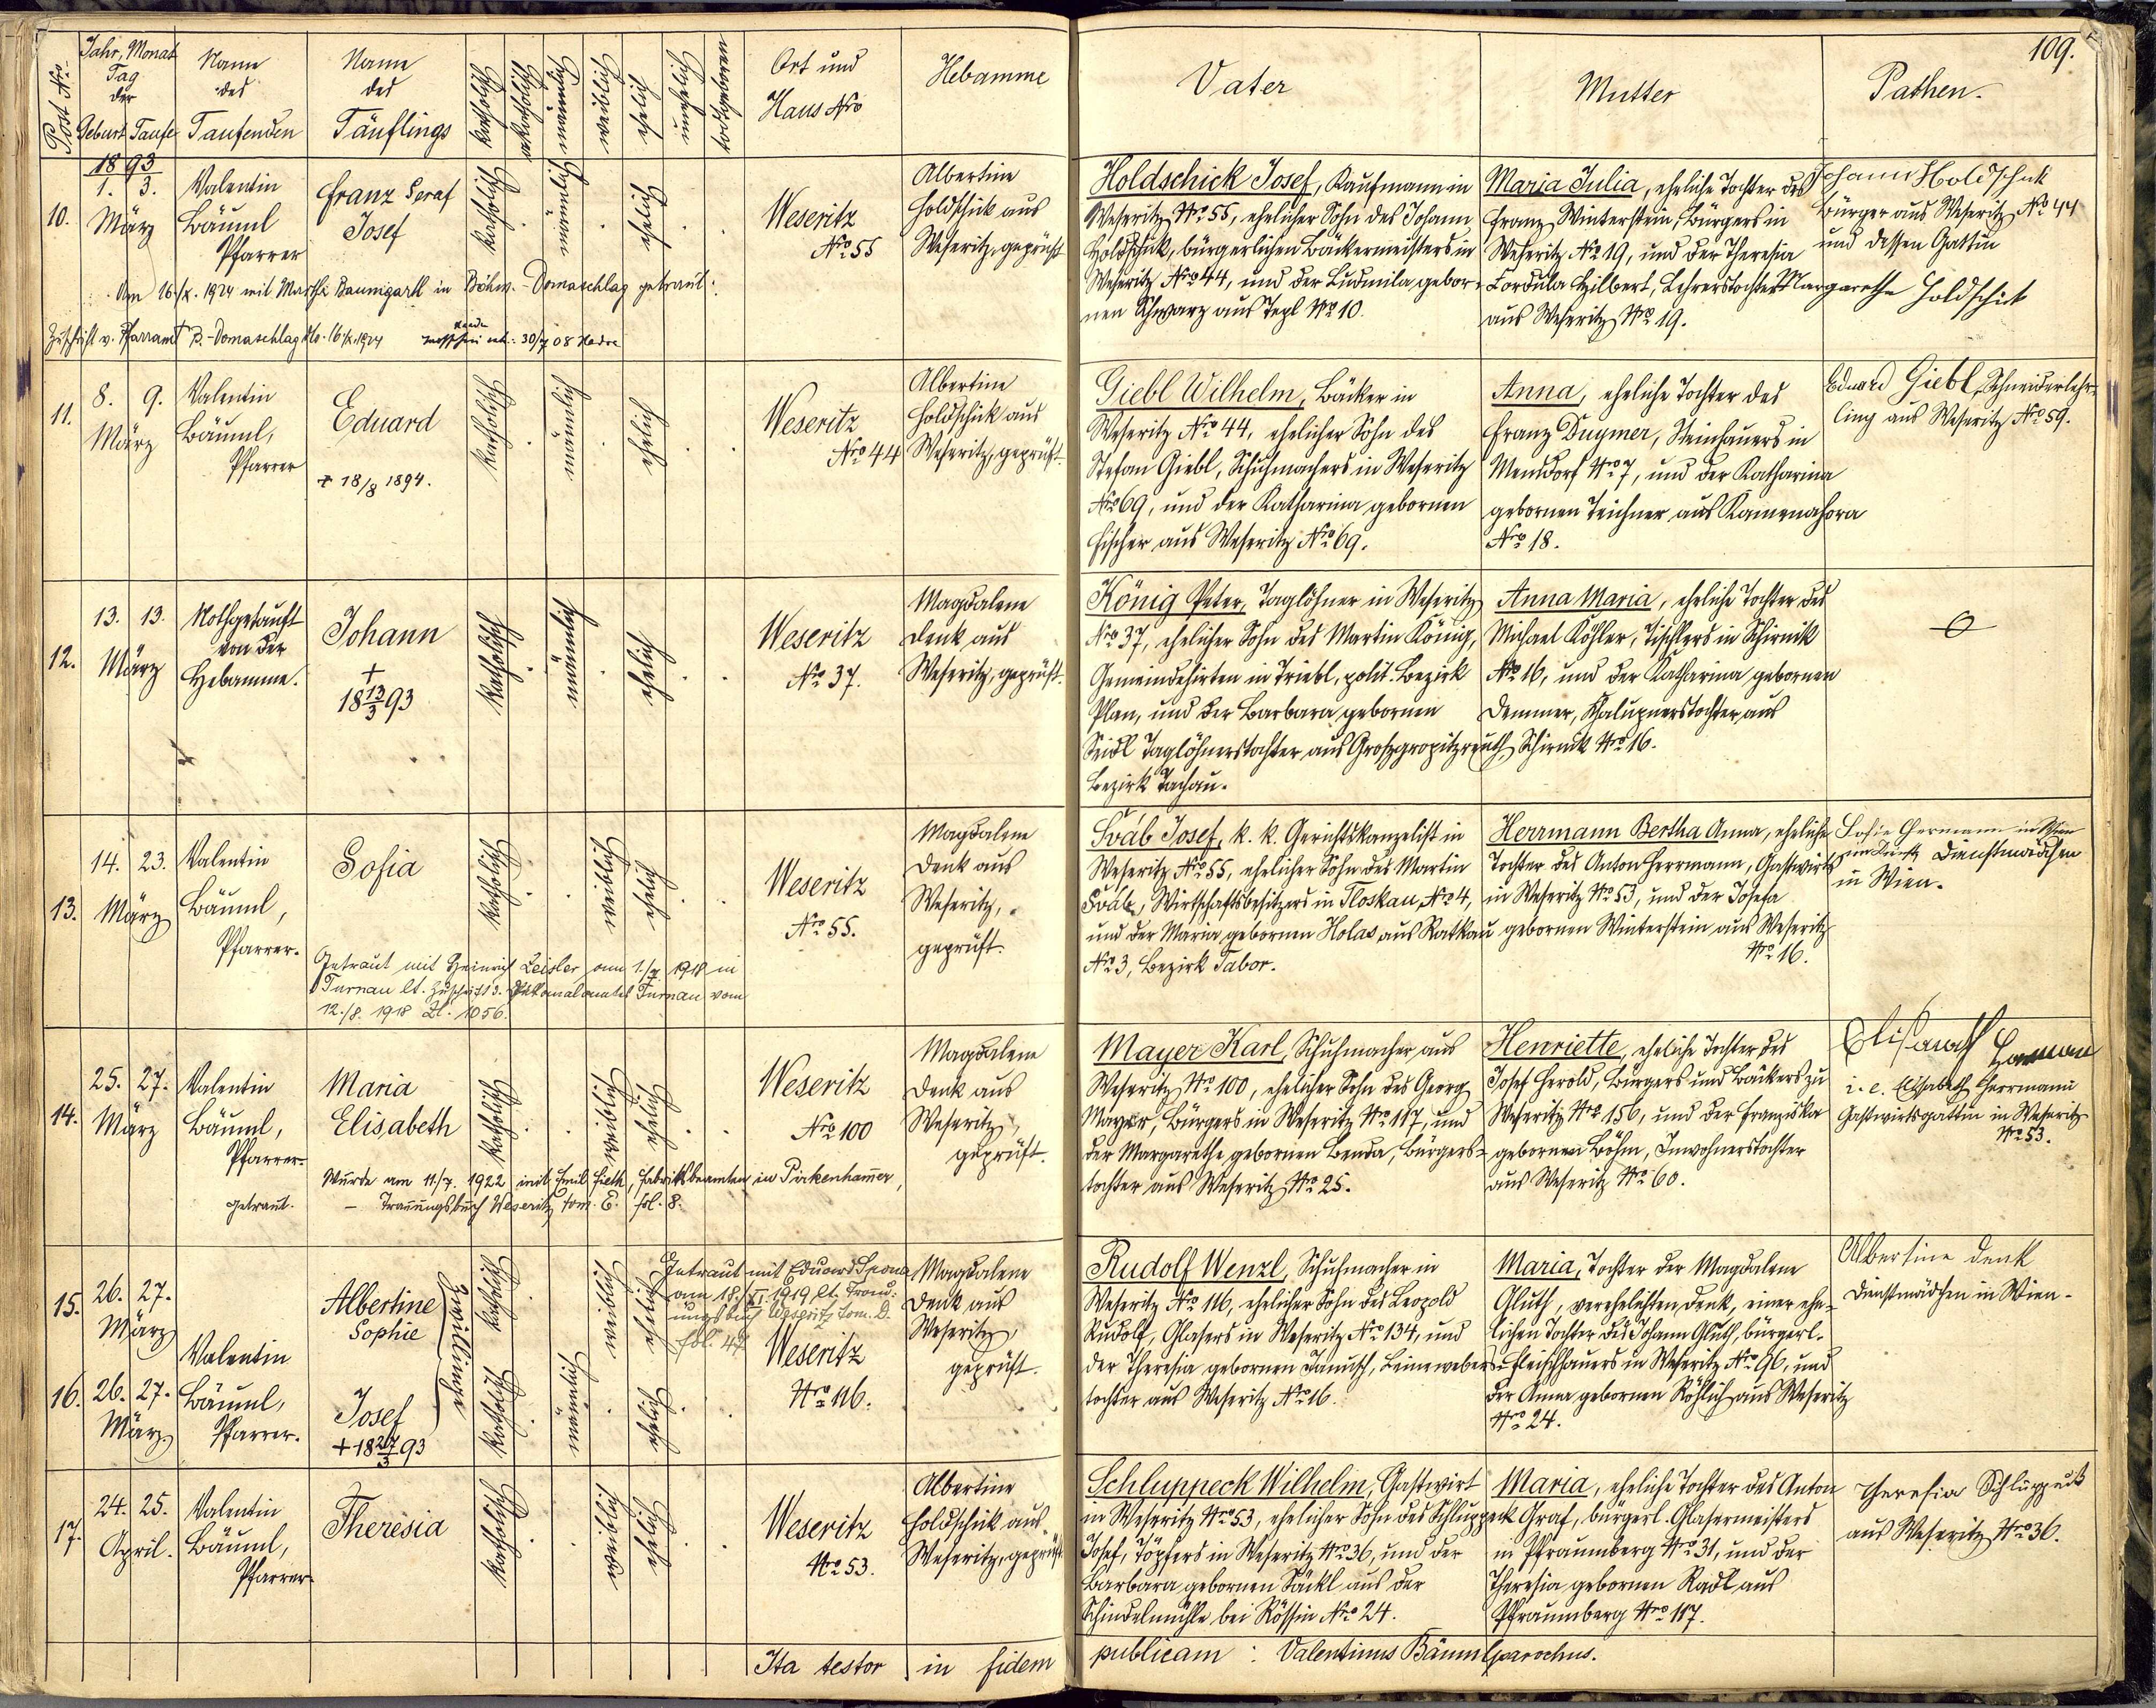 109.
Post Nro.
Jahr, Monat
Tag
der
Geburt Taufe
Name
des
Taufenden
Name
des
Täuflings
katholisch
akatholisch
männlich
weiblich
ehelich
unehelich
todtgeboren
Ort und
Haus Nro
Hebamme
Vater
Mutter
Pathen.
1893
10.
1. 3.
März
Valentin
Bäuml
Pfarrer
Franz Seraf
Josef
katholisch
männlich
ehelich
Weseritz
No 55
Albertine
Holdschick aus
Weseritz, geprüft
Holdschick Josef, Kaufmann in
Weseritz No 55, ehelicher Sohn des Johann
Holdschick, bürgerlichen Bäckermeisters in
Weseritz Nro 44, und der Ludmila gebor-
nen Schwarz aus Tepl No 10.
Maria Julia, eheliche Tochter des
Franz Winterstein, Bürgers in
Weseritz No 19, und der Theresia
Kordula Hilbert, Lehrerstochter
aus Weseritz No 19.
Johann Holdschik
Bürger aus Weseritz No 44
und dessen Gattin
Margarethe Holdschik
Am 16./X. 1924 mit Martha Baumgartl in Böhm.-Domaschlag getraut.
Zuschrift v. Pfarramt B.-Domaschlag dto. 16./X. 1924
11.
8. 9.
März
Valentin
Bäuml,
Pfarrer
Eduard
+ 18/8 1894.
katholisch
männlich
ehelich
Weseritz
Nro 44
Albertine
Holdschick aus
Weseritz, geprüft.
Giebl Wilhelm, Bäcker in
Weseritz Nro 44, ehelicher Sohn des
Stefan Giebl, Schuhmachers in Weseritz
No 69, und der Katharina gebornen
Fischer aus Weseritz Nro 69.
Anna, eheliche Tochter des
Franz Duymer, Steinhauers in
Mensdorf No 7, und der Katharina
gebornen Teichner aus Kamenahora
Nro 18.
Eduard Giebl, Schneiderlehr-
ling aus Weseritz Nro 59.
12.
13. 13.
März
Nothgetauft
von der
Hebamme.
Johann
+
18 13/3 93
katholisch
männlich
ehelich
Weseritz
Nro 37.
Magdalene
Denk aus
Weseritz, geprüft.
König Peter, Taglöhner in Weseritz
Nro 37, ehelicher Sohn des Martin König,
Gemeindehirten in Triebl, polit. Bezirk
Plan, und der Barbara gebornen
Seidl Taglöhnerstochter aus Großgropitzreuth,
Bezirk Tachau.
Anna Maria, eheliche Tochter des
Michael Köhler, Tischlers in Schirnik
No 16, und der Katharina gebornen
Demmer, Chalupnerstochter, aus
Schirnik No 16.
13.
14. 23.
März
Valentin
Bäuml,
Pfarrer.
Sofia
katholisch
weiblich
ehelich
Weseritz
Nro 55.
Magdalene
Denk aus
Weseritz,
geprüft.
Šváb Josef, k. k. Gerichtskanzelist in
Weseritz Nro 55, ehelicher Sohn des Martin
Šváb, Wirtschaftsbesitzers in Tloskau, Nro 4,
und der Maria gebornen Holas aus Ratkau
No 3, Bezirk Tabor.
Herrmann Bertha Anna, eheliche
Tochter des Anton Herrmann, Gastwirts
in Weseritz No 53, und der Josefa
gebornen Winterstein aus Weseritz
No 16.
Sofie Hermann in Wien
Dienstmädchen
in Wien.
Getraut mit Heinrich Zeisler am 1./7. 1918 in
Turnau lt. Zuschrift d. Dekanalamtes Turnau vom
12./8. 1918 Zl. 1056.
14.
25. 27.
März
Valentin
Bäuml,
Pfarrer.
Maria
Elisabeth
katholisch
weiblich
ehelich
Weseritz
Nro 100
Magdalene
Denk aus
Weseritz,
geprüft.
Mayer Karl, Schuhmacher aus
Weseritz No 100, ehelicher Sohn des Georg
Mayer, Bürgers in Weseritz No 117, und
der Margarethe gebornen Benda, Bürgers-
tochter aus Weseritz No 25.
Henriette, eheliche Tochter des
Josef Herold, Bürgers und Bäckers zu
Weseritz No 156, und der Franziska
gebornen Böhm, Inwohnerstochter
aus Weseritz No 60.
Elisabeth Herman
i. e. Elisabeth Herrmann
Gastwirtsgattin in Weseritz
No 53.
Wurde am 11./7. 1922 mit Emil Hieth, Fabriksbeamten in Pirkenhammer,
getraut. – Trauungsbuch Weseritz tom. E. fol. 8.
15.
26. 27.
März
Albertine
Sophie
Zwillinge
katholisch
weiblich
ehelich
Getraut mit Eduard Spona
am 18./XI. 1919 lt. Trau-
ungsbuch Weseritz tom. D.
fol. 47
Magdalene
Denk aus
Weseritz,
geprüft.
16.
26. 27.
März.
Valentin
Bäuml,
Pfarrer.
Josef
+ 18 27/3 93
katholisch
männlich
ehelich
Weseritz
No 116.
Rudolf Wenzl, Schuhmacher in
Weseritz No 116, ehelicher Sohn des Leopold
Rudolf, Glasers in Weseritz No 134, und
der Theresia gebornen Janusch, Leinewebers-
tochter aus Weseritz No 16.
Maria, Tochter der Magdalene
Gluth, verehelichten Denk, einer ehe-
lichen Tochter des Johann Gluth, bürgerl.
Fleischhauers in Weseritz No 96, und
der Anna gebornen Röhlich aus Weseritz
No 24.
Albertine Denk
Dienstmädchen in Wien.
17.
24. 25.
April.
Valentin
Bäuml,
Pfarrer.
Theresia
katholisch
weiblich
ehelich
Weseritz
No 53.
Albertine
Holdschick aus
Weseritz, geprüft
Schluppeck Wilhelm, Gastwirt
in Weseritz No 53, ehelicher Sohn des Schluppeck
Josef, Töpfers in Weseritz No 36, und der
Barbara gebornen Säckl aus der
Schindelmühle bei Rössin No 24.
Maria, eheliche Tochter des Anton
Graf, bürgerl. Glasermeisters
in Pfraumberg No 31, und der
Theresia gebornen Radl aus
Pfraumberg No 117.
Theresia Schluppeck
aus Weseritz No 36.
Ita testor in fidem publicam: Valentinus Bäuml parochus.